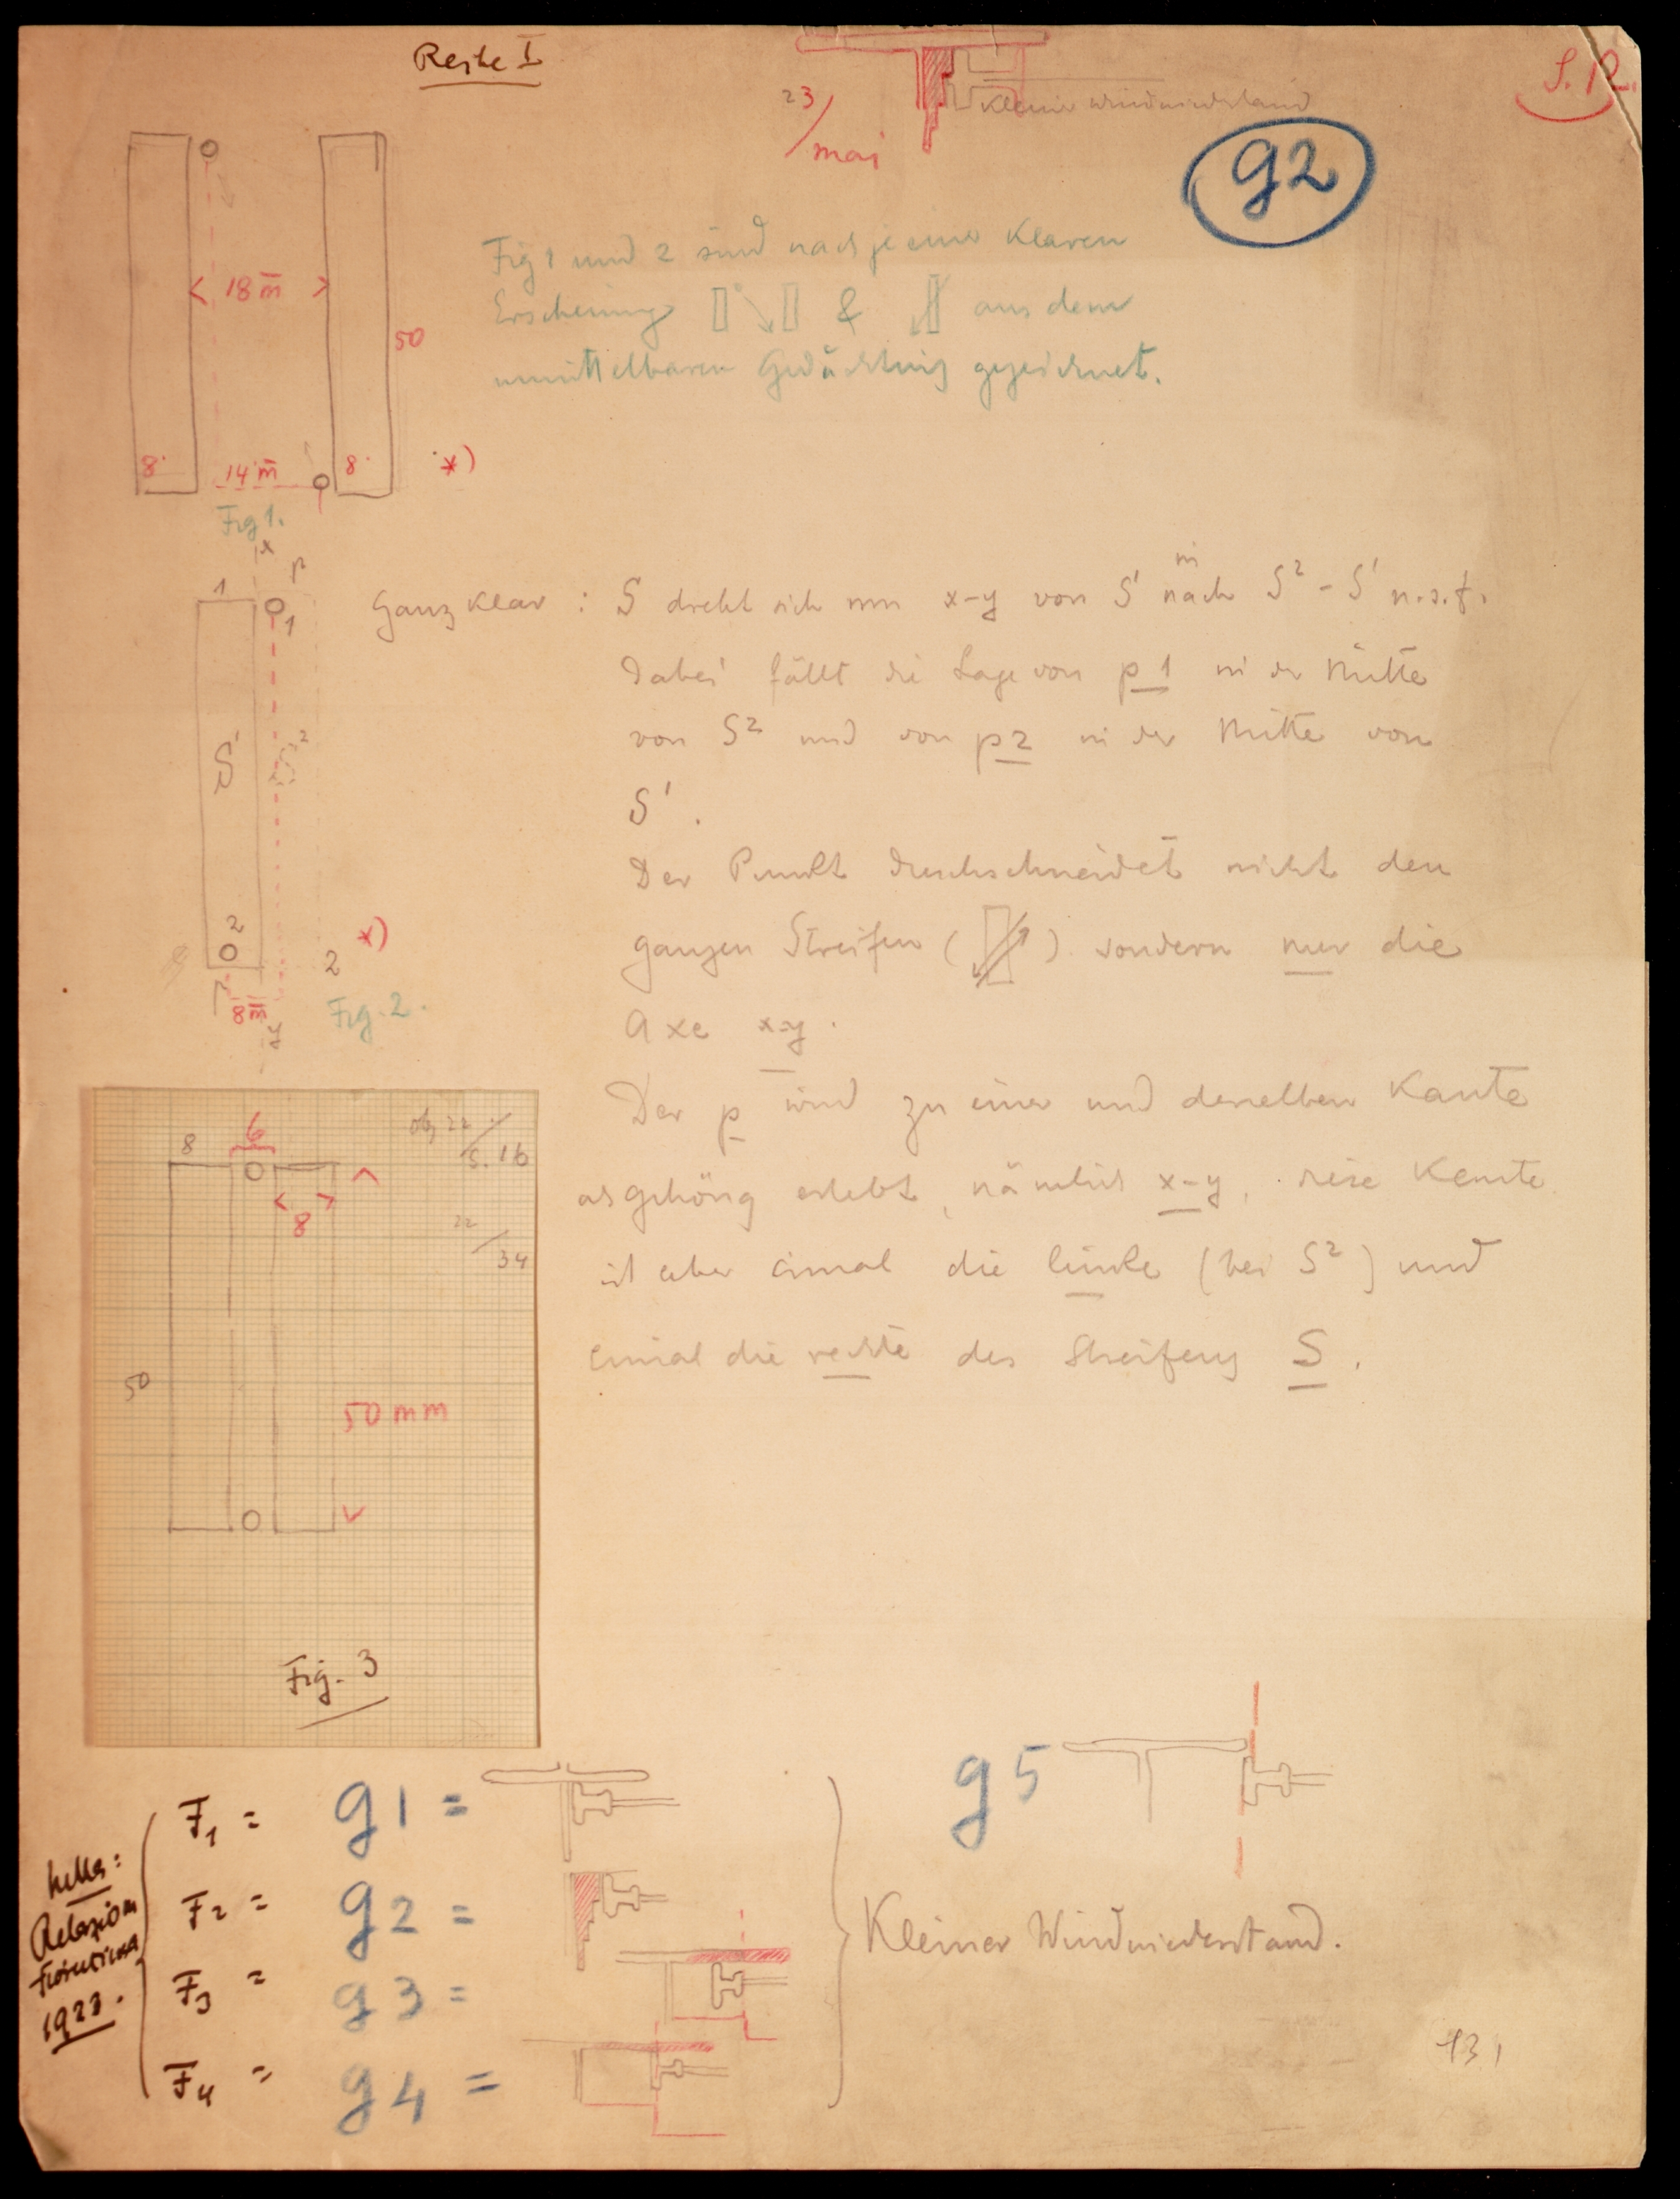 Reihe I
S. R.
23/mai
kleiner Windwiderstand
g2
Fig 1 und 2 sind nach je einer klaren
Erscheinung & aus dem
unmittelbaren Gedächtnis gezeichnet.
< 18 m >
50
8
14 m
8
*)
Fig 1.
x
p
1
1
S'
2
2
*)
8 m
y
Fig. 2.
Ganz klar : S dreht sich um x-y von S' nach in S² - S' u.s.f.
Dabei fällt die Lage von p 1 in der Mitte
von S² und von p2 in der Mitte von
S'.
Der Punkt durchschneidet nicht den
ganzen Streifen ( ) sondern nur die
Axe x-y.
Der p wird zu einer und derselben Kante
als gehörig erlebt, nämlich x-y, diese Kante
ist aber einmal die linke (bei S²) und
einmal die rechte des Streifens S.
8
6
22/S. 16
< 8 >
22/34
50
50 mm
Fig. 3
F1 = g1 =
F2 = g2 =
F3 = g3 =
F4 = g4 =
1922.
g5
Kleiner Windwiderstand.